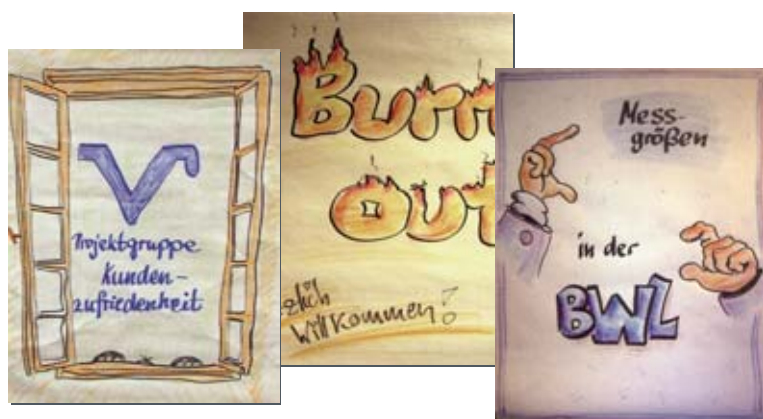 Projektgruppe
Kunden-
zufriedenheit
Burn
out
zlich
Willkommen!
Mess-
größen
in der
BWL